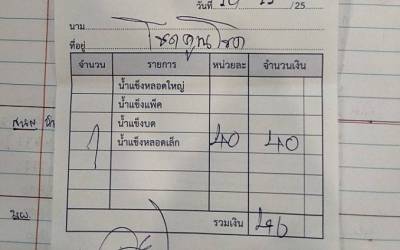 วันที่ /25
นาม โชคคูนโชค
ที่อยู่
จำนวน รายการ หน่วยละ จำนวนเงิน
น้ำแข็งหลอดใหญ่
น้ำแข็งแพ็ค
น้ำแข็งบด
1 น้ำแข็งหลอดเล็ก 40 40
รวมเงิน